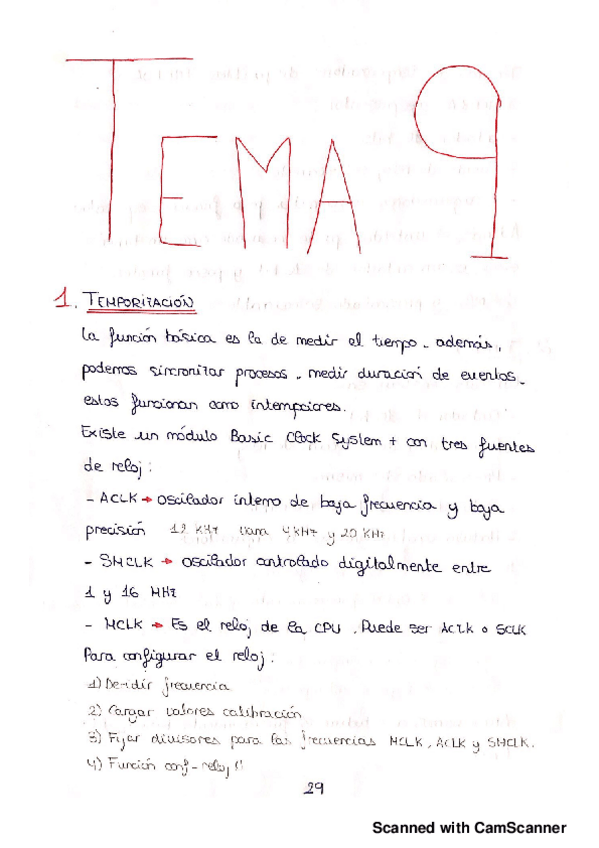 TEMA 9
1. TEMPORIZACIÓN
La función básica es la de medir el tiempo. además,
podemos sincronizar procesos, medir duración de eventos.
estos funcionan como
Existe un módulo Basic Clock System + con tres fuentes
de reloj:
- ACLK → Oscilador interno de baja frecuencia y baja
precisión 12 KHz 4KHz y 20 KHz
- SMCLK → Oscilador controlado digitalmente entre
1 y 16 MHz
- MCLK → Es el reloj de la CPU. Puede ser o
Para configurar el reloj:
1) Decidir frecuencia
2) Cargar valores calibración
3) Fijar divisores para las frecuencias MCLK, ACLK y SMCLK.
4) Función conf-reloj ()
29
Scanned with CamScanner